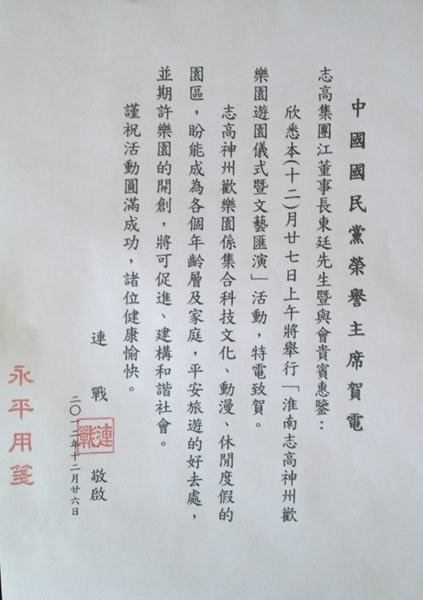 中國國民黨榮譽主席賀電
志高集團江董事長東廷先生暨與會貴賓惠鑒：
欣悉本(十二)月廿七日上午將舉行「淮南志高神州歡
樂園遊園儀式暨文藝匯演」活動，特電致賀。
志高神州歡樂園係集合科技文化、動漫、休閒度假的
園區，盼能成為各個年齡層及家庭，平安旅遊的好去處，
並期許樂園的開創，將可促進、建構和諧社會。
謹祝活動圓滿成功，諸位健康愉快。
連戰 敬啟
連戰
二〇一二年十二月廿六日
永平用箋